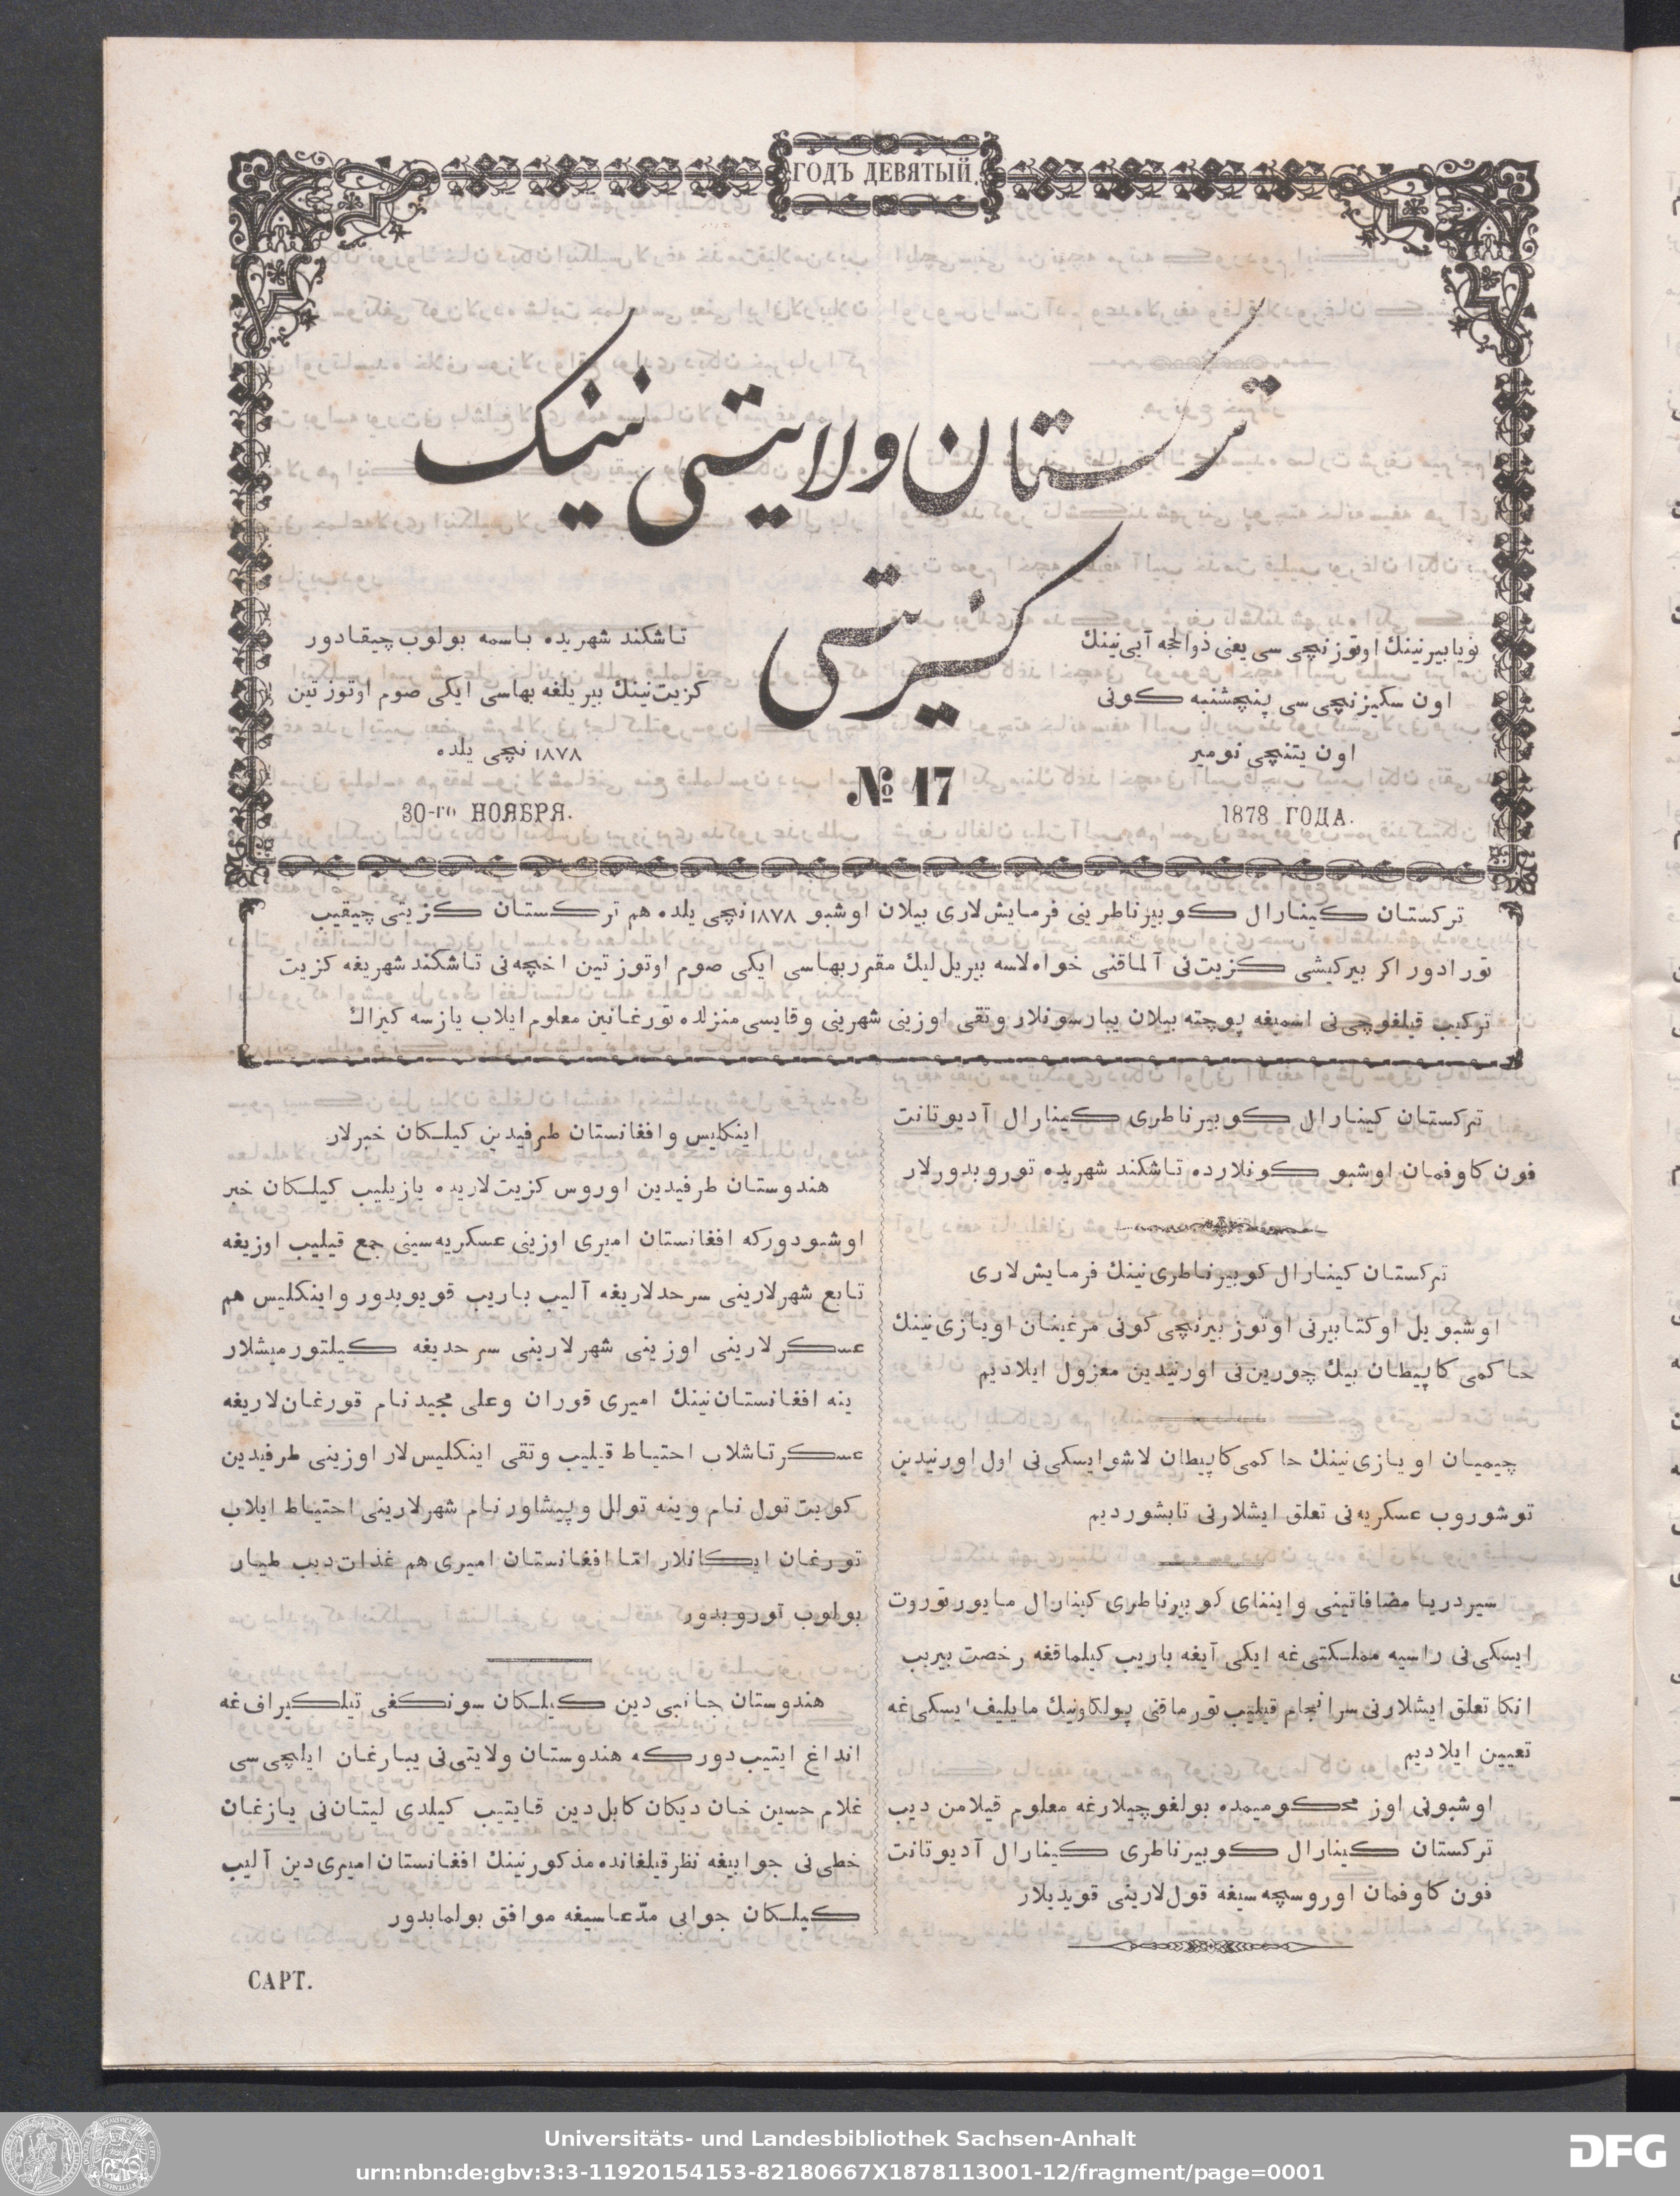 ГОДЪ ДЕВЯТЫЙ.
ترکستان ولایتی نینک
کزیتی
نویابیر نینك اوتوز نچی سی یعنی ذوالحجه آیی نینك
اون سکیز نچی سی پنچشنبه کونی
اون یتنچی نومیر
1878 ГОДА.
№ 17
تاشکند شهریده باسمه بولوب چیقادور
کزیت نینك بیر یلغه بهاسی ایکی صوم اوتوز تین
۱۸۷۸ نچی یلده
30-го НОЯБРЯ.
ترکستان کینارال کوبیرناطرینی فرمایش لاری بیلان اوشبو ۱۸۷۸ نچی یلده هم ترکستان کزیتی چیقیب
تورادور اکر بیر کیشی کزیت نی آلماقنی خواه لاسه بیر یل لیك مقرر بهاسی ایکی صوم اوتوز تین اخچه نی تاشکند شهریغه کزیت
ترکیب قیلغوچی نی اسمیغه پوچته بیلان یبارسونلار و تقی اوزینی شهرینی و قایسی منزلده تورغانین معلوم ایلاب یازسه کیراك
ترکستان کینارال کوبیرناطری کینارال آدیوتانت
فون کاوفمان اوشبو کونلارده تاشکند شهریده توروبدورلار
ترکستان کینارال کوبیرناطری نینك فرمایش لاری
اوشبو یل اوکتابیرنی اوتوز بیرنچی کونی مرغینان اویازی نینك
حاکمی کاپیطان بیك چورین نی اورنیدین معزول ایلادیم
چیمیان اویازی نینك حاکمی کاپیطان لاشوایسکی نی اول اورنیدین
توشوروب عسکریه نی تعلق ایشلارنی تابشوردیم
سیردریا مضافاتینی واینای کوبیرناطری کینارال مایور تروت
ایسکی نی راسیه مملکتی غه ایکی آیغه باریب کیلماقغه رخصت بیریب
انکا تعلق ایشلارنی سرانجام قیلیب تورماقنی پولکاونیك مایلیف ایسکی غه
تعیین ایلادیم
اوشبونی اوز محکومیمده بولغوچیلارغه معلوم قیلامن دیب
ترکستان کینارال کوبیرناطری کینارال آدیوتانت
فون کاوفمان اوروسچه سیغه قول لارینی قویدیلار
اینکلیس و افغانستان طرفیدین کیلکان خبرلار
هندوستان طرفیدین اوروس کزیت لاریده یازیلیب کیلکان خبر
اوشبودورکه افغانستان امیری اوزینی عسکریه سینی جمع قیلیب اوزیغه
تابع شهرلارینی سرحدلاریغه آلیب باریب قویوبدور و اینکلیس هم
عسکرلارینی اوزینی شهرلارینی سرحدیغه کیلتورمیشلار
ینه افغانستان نینك امیری قوران وعلی مجید نام قورغان لاریغه
عسکر تاشلاب احتیاط قیلیب و تقی اینکلیس لار اوزینی طرفیدین
کویت تول نام وینه تولل و پیشاور نام شهرلارینی احتیاط ایلاب
تورغان ایکانلار امّا افغانستان امیری هم غذات دیب طیار
بولوب توروبدور
هندوستان جانبی دین کیلکان سونکغی تیلکیراف غه
انداغ ایتیب دورکه هندوستان ولایتی نی یبارغان ایلچی سی
غلام حسین خان دیکان کابل دین قایتیب کیلدی لیتان نی یازغان
خطی نی جوابیغه نظر قیلغانده مذکورنینك افغانستان امیری دین آلیب
کیلکان جوابی مدّعاسیغه موافق بولمابدور
САРТ.
Universitäts- und Landesbibliothek Sachsen-Anhalt
urn:nbn:de:gbv:3:3-11920154153-82180667X1878113001-12/fragment/page=0001
DFG